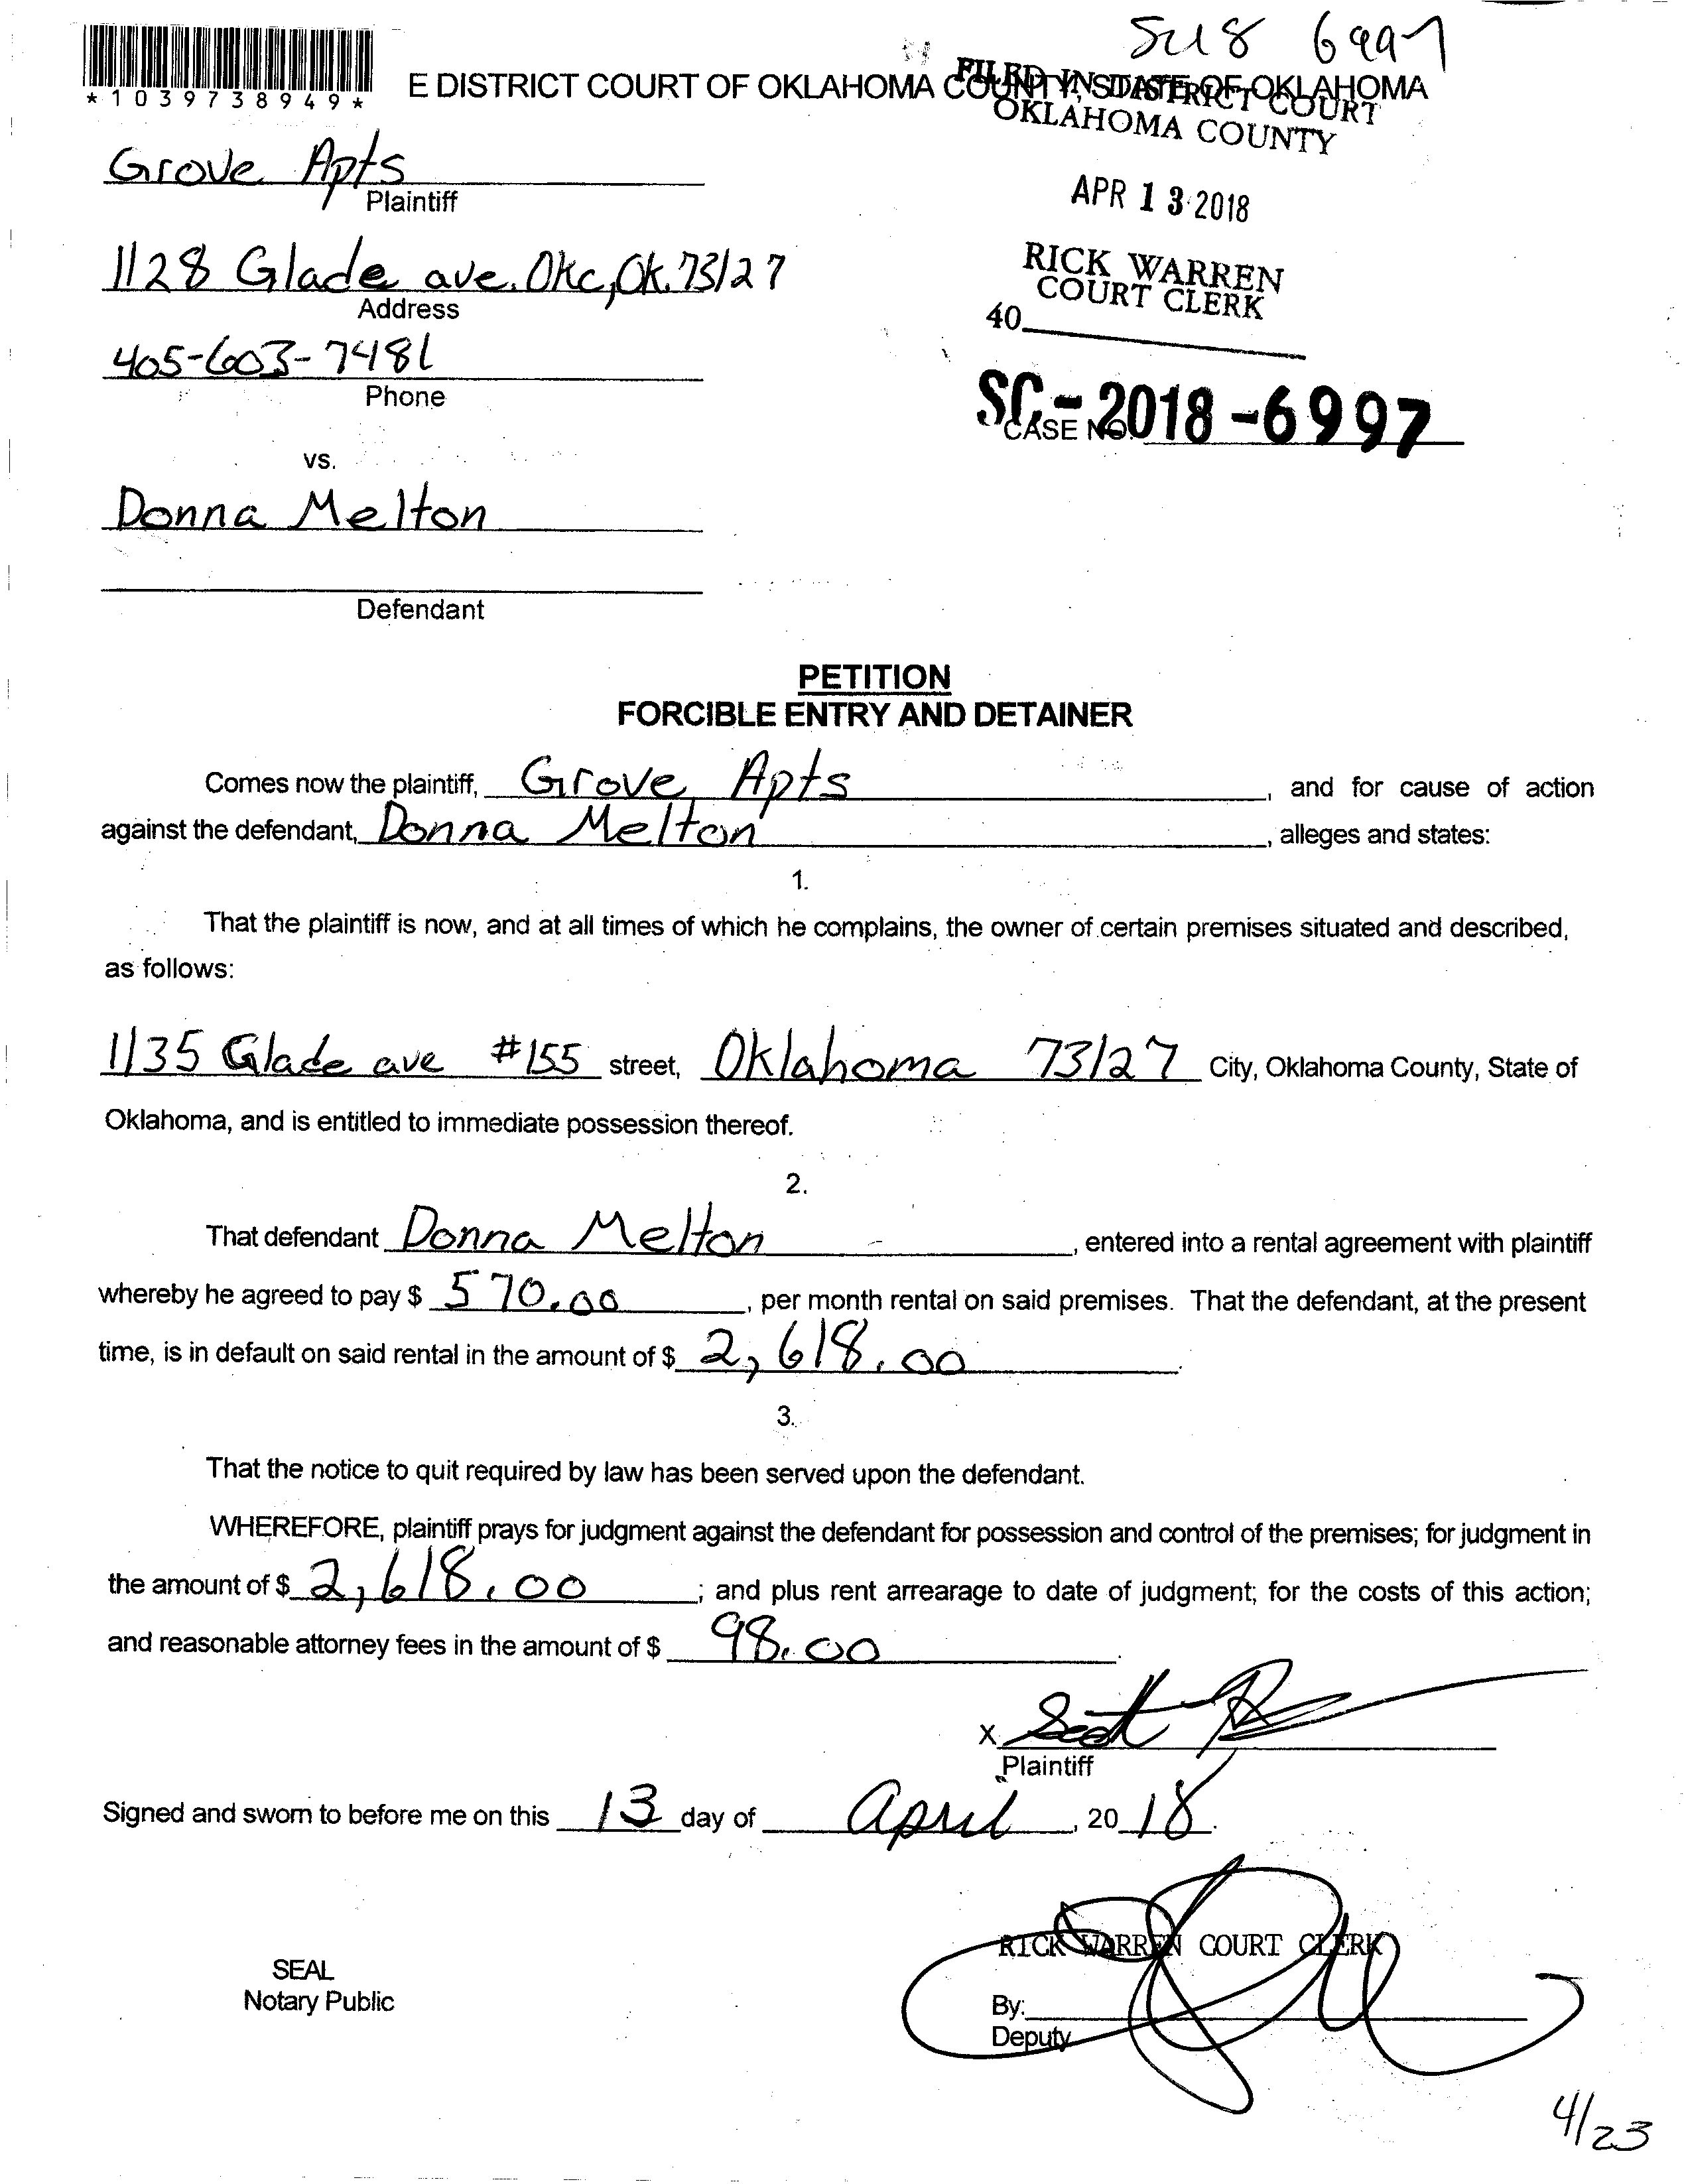 SC18 6997
*1039738949*
E DISTRICT COURT OF OKLAHOMA COUNTY, STATE OF OKLAHOMA
FILED IN DISTRICT COURT
OKLAHOMA COUNTY
Grove Apts
Plaintiff
APR 13 2018
1128 Glade ave. Okc, Ok. 73127
Address
RICK WARREN
COURT CLERK
40
405-603-7481
Phone
SC-2018-6997
CASE NO.
vs.
Donna Melton
Defendant
PETITION
FORCIBLE ENTRY AND DETAINER
Comes now the plaintiff, Grove Apts, and for cause of action
against the defendant, Donna Melton, alleges and states:
1.
That the plaintiff is now, and at all times of which he complains, the owner of certain premises situated and described,
as follows:
1135 Glade ave #155 street, Oklahoma 73127 City, Oklahoma County, State of
Oklahoma, and is entitled to immediate possession thereof.
2.
That defendant Donna Melton, entered into a rental agreement with plaintiff
whereby he agreed to pay $ 570.00, per month rental on said premises. That the defendant, at the present
time, is in default on said rental in the amount of $ 2,618.00.
3.
That the notice to quit required by law has been served upon the defendant.
WHEREFORE, plaintiff prays for judgment against the defendant for possession and control of the premises; for judgment in
the amount of $ 2,618.00; and plus rent arrearage to date of judgment; for the costs of this action;
and reasonable attorney fees in the amount of $ 98.00.
X Scott
Plaintiff
Signed and sworn to before me on this 13 day of April, 2018.
RICK WARREN COURT CLERK
SEAL
Notary Public
By:
Deputy
4/23